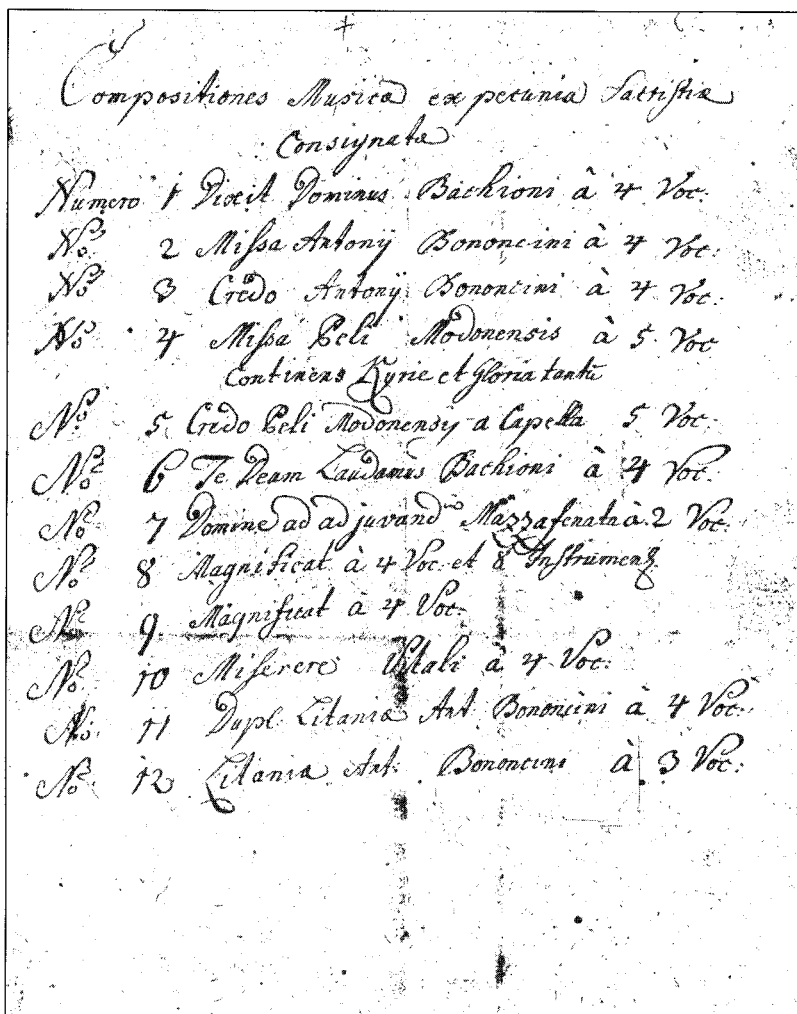 Compositiones Musicæ ex pecunia Sacristiæ
Consignatæ
Numero 1 Dixit Dominus Bachioni à 4 Voc:
No. 2 Missa Antonij Bononcini à 4 Voc:
No. 3 Credo Antonij Bononcini à 4 Voc:
No. 4 Missa Peli Modonensis à 5 Voc
Continens Kyrie et Gloria tantū
No. 5 Credo Peli Modonensis a Capella 5 Voc:
No. 6 Te Deum Laudamus Bachioni à 4 Voc.
No. 7 Domine ad adjuvand Mazzaferrata à 2 Voc:
No. 8 Magnificat à 4 Voc. et 8 Instrument
No. 9 Magnificat à 4 Voc.
No. 10 Miserere Vitali à 4 Voc:
No. 11 Dupl. Litaniæ Ant. Bononcini à 4 Voc:
No. 12 Litaniæ Ant. Bononcini à 3 Voc: